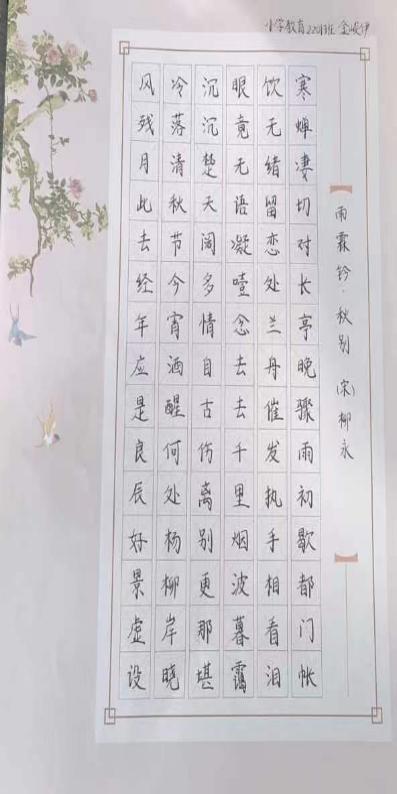 小学教育2201班 金
雨霖铃·秋别 (宋)柳永
寒蝉凄切对长亭晚骤雨初歇都门帐
饮无绪留恋处兰丹催发执手相看泪
眼竟无语凝噎念去去千里烟波暮霭
沉沉楚天阔多情自古伤离别更那堪
冷落清秋节今宵酒醒何处杨柳岸晓
风残月此去经年应是良辰好景虚设